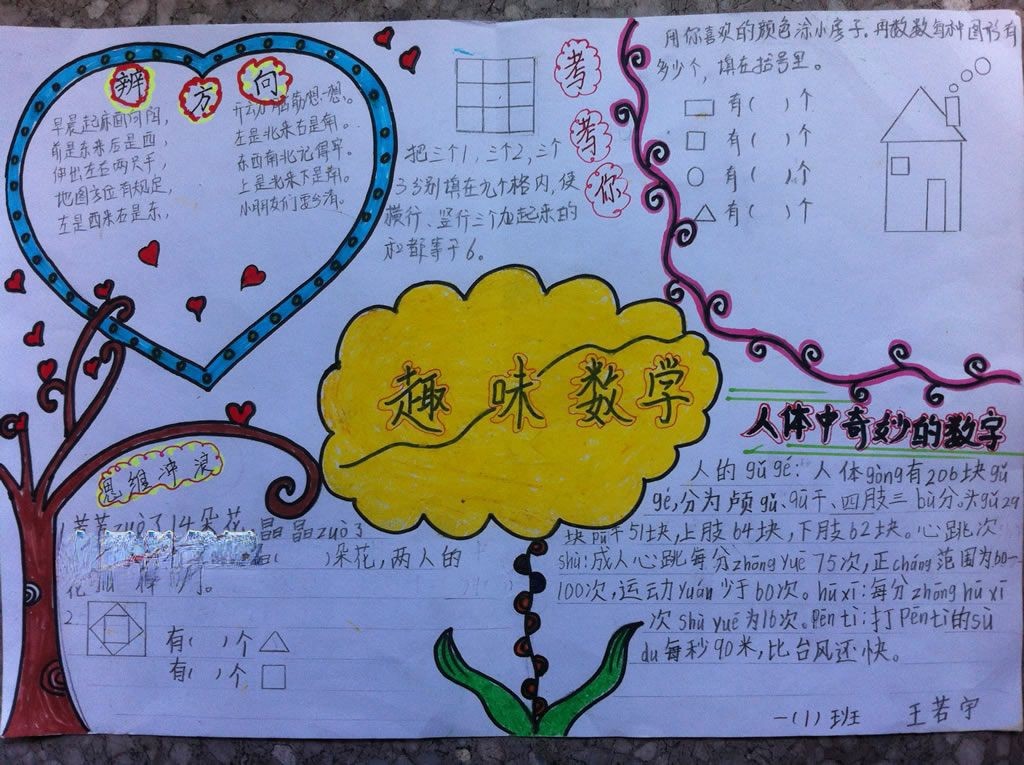 辨方向
早晨起床面向阳,
前是东来后是西,
伸出左右两只手,
左是北来右是南。
东西南北记得牢。
地图方位有规定,
上是北来下是南。
左是西来右是东,
小朋友们要分清。
考考你
把三个1,三个2,三个
3分别填在九个格内,使
横行、竖行三个加起来的
和都等于6。
用你喜欢的颜色涂小房子.再数数每种图形有
多少个,填在括号里。
有( )个
有( )个
有( )个
有( )个
趣味数学
思维冲浪
1. zuò了14朵花
晶晶zuò了
( )朵花,两人的
花
2.
有( )个
有( )个
人体中奇妙的数字
人的gǔ gé:人体gòng有206块gǔ
gé,分为颅gǔ、qū干、四肢三bù分。头gǔ29
块qū干51块,上肢64块,下肢62块。心跳次
shù:成人心跳每分zhōng yuē 75次,正cháng范围为60—
100次,运动yuán少于60次。hū xī:每分zhōng hū xī
次shù yuē为16次。Pēn tì:打Pēn tì的sù
du每秒90米,比台风还快。
一(1)班 王若宇